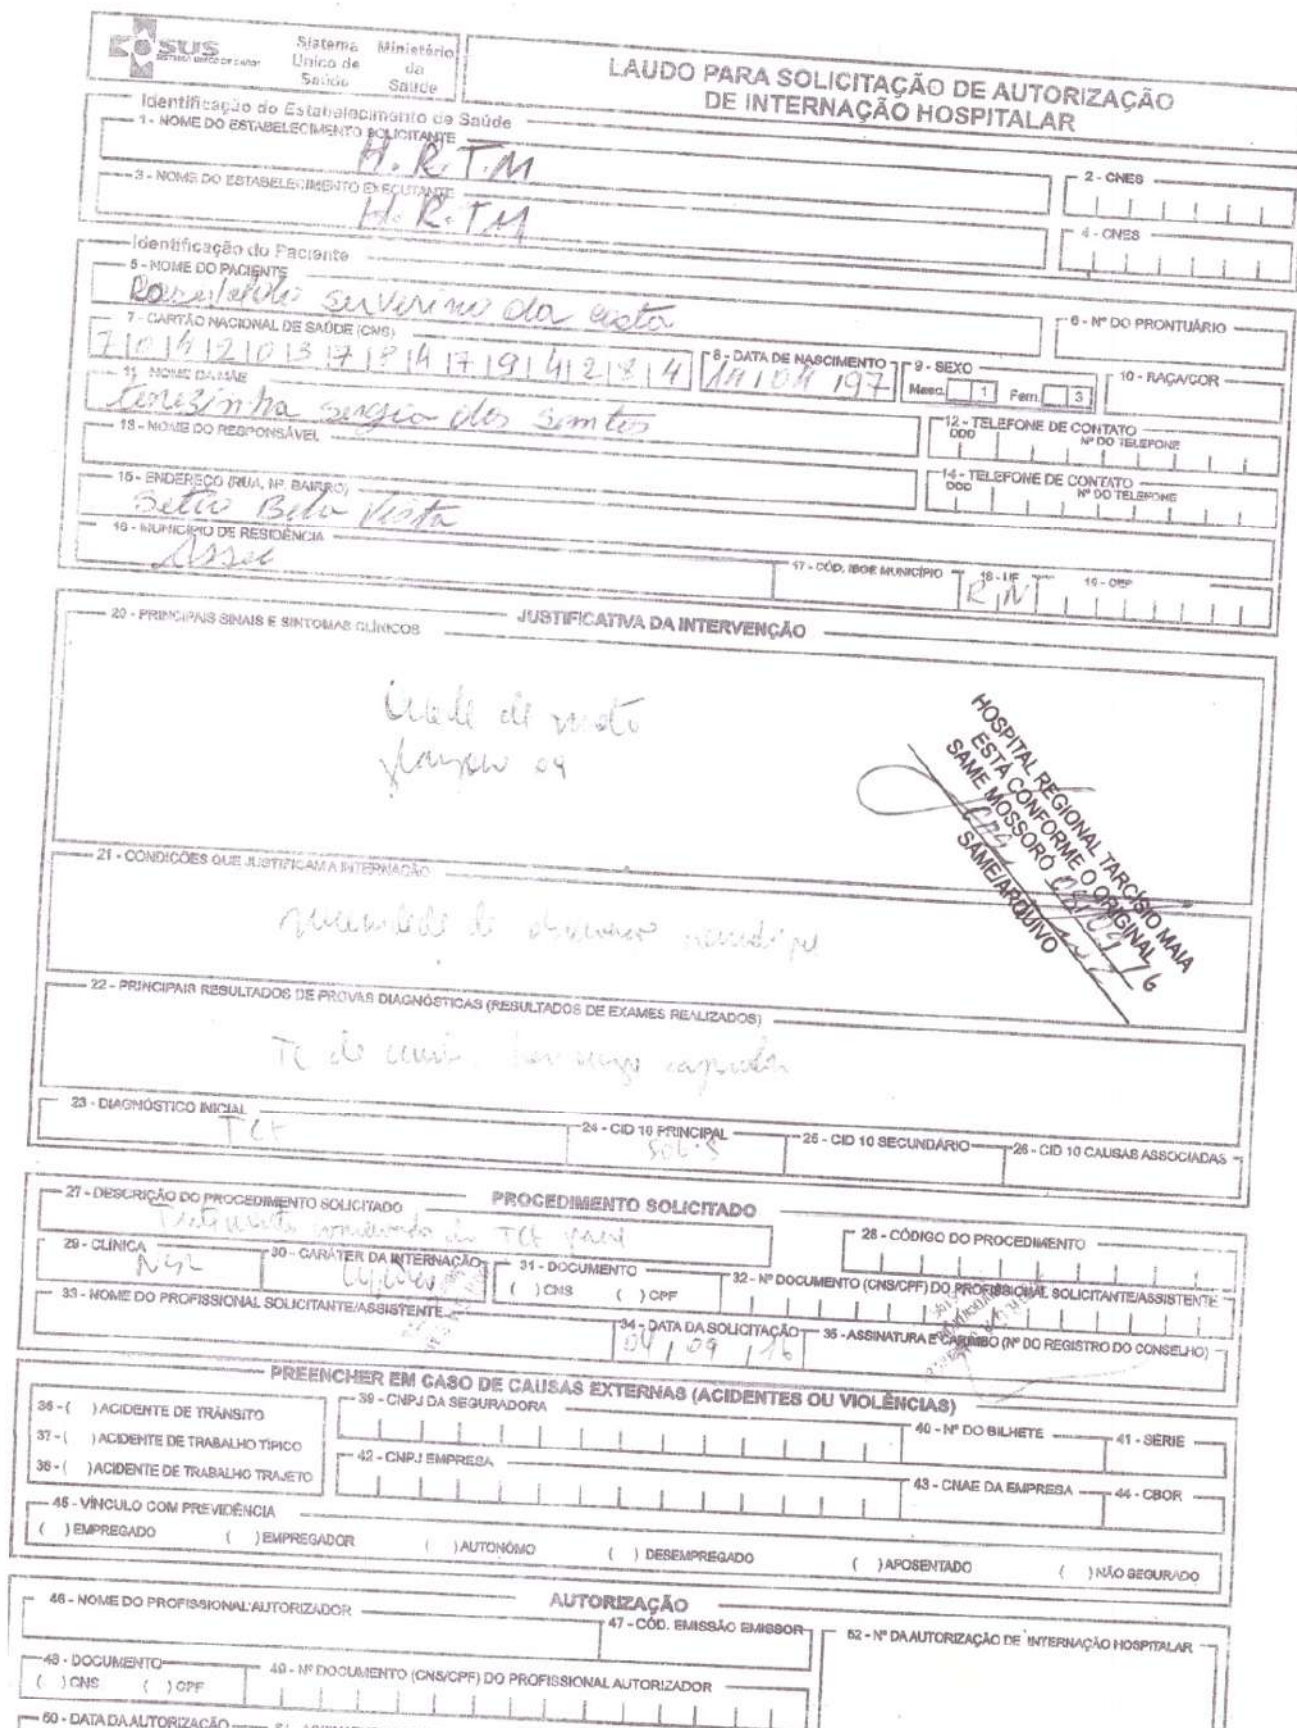 SUS
Sistema Único de Saúde
Ministério da Saúde
LAUDO PARA SOLICITAÇÃO DE AUTORIZAÇÃO
DE INTERNAÇÃO HOSPITALAR
Identificação do Estabelecimento de Saúde
1 - NOME DO ESTABELECIMENTO SOLICITANTE
H. R. T. M
2 - CNES
3 - NOME DO ESTABELECIMENTO EXECUTANTE
H. R. T M
4 - CNES
Identificação do Paciente
5 - NOME DO PACIENTE
severino da costa
6 - Nº DO PRONTUÁRIO
7 - CARTÃO NACIONAL DE SAÚDE (CNS)
8 - DATA DE NASCIMENTO
9 - SEXO
Masc. 1 Fem. 3
10 - RAÇA/COR
11 - NOME DA MÃE
terezinha sergio dos santos
12 - TELEFONE DE CONTATO
DDD Nº DO TELEFONE
13 - NOME DO RESPONSÁVEL
14 - TELEFONE DE CONTATO
DDD Nº DO TELEFONE
15 - ENDEREÇO (RUA, Nº, BAIRRO)
Bela Vista
16 - MUNICÍPIO DE RESIDÊNCIA
17 - CÓD. IBGE MUNICÍPIO
18 - UF
RN
19 - CEP
JUSTIFICATIVA DA INTERVENÇÃO
20 - PRINCIPAIS SINAIS E SINTOMAS CLÍNICOS
de moto
HOSPITAL REGIONAL TARCÍSIO MAIA
ESTÁ CONFORME O ORIGINAL
SAME MOSSORÓ
SAME/ARQUIVO
21 - CONDIÇÕES QUE JUSTIFICAM A INTERNAÇÃO
22 - PRINCIPAIS RESULTADOS DE PROVAS DIAGNÓSTICAS (RESULTADOS DE EXAMES REALIZADOS)
TC de
23 - DIAGNÓSTICO INICIAL
24 - CID 10 PRINCIPAL
25 - CID 10 SECUNDÁRIO
26 - CID 10 CAUSAS ASSOCIADAS
PROCEDIMENTO SOLICITADO
27 - DESCRIÇÃO DO PROCEDIMENTO SOLICITADO
28 - CÓDIGO DO PROCEDIMENTO
29 - CLÍNICA
30 - CARÁTER DA INTERNAÇÃO
31 - DOCUMENTO
( ) CNS ( ) CPF
32 - Nº DOCUMENTO (CNS/CPF) DO PROFISSIONAL SOLICITANTE/ASSISTENTE
33 - NOME DO PROFISSIONAL SOLICITANTE/ASSISTENTE
34 - DATA DA SOLICITAÇÃO
04 09 16
35 - ASSINATURA E CARIMBO (Nº DO REGISTRO DO CONSELHO)
PREENCHER EM CASO DE CAUSAS EXTERNAS (ACIDENTES OU VIOLÊNCIAS)
36 - ( ) ACIDENTE DE TRÂNSITO
37 - ( ) ACIDENTE DE TRABALHO TÍPICO
38 - ( ) ACIDENTE DE TRABALHO TRAJETO
39 - CNPJ DA SEGURADORA
40 - Nº DO BILHETE
41 - SÉRIE
42 - CNPJ EMPRESA
43 - CNAE DA EMPRESA
44 - CBOR
45 - VÍNCULO COM PREVIDÊNCIA
( ) EMPREGADO ( ) EMPREGADOR ( ) AUTONÔMO ( ) DESEMPREGADO ( ) APOSENTADO ( ) NÃO SEGURADO
AUTORIZAÇÃO
46 - NOME DO PROFISSIONAL AUTORIZADOR
47 - CÓD. EMISSÃO EMISSOR
52 - Nº DA AUTORIZAÇÃO DE INTERNAÇÃO HOSPITALAR
48 - DOCUMENTO
( ) CNS ( ) CPF
49 - Nº DOCUMENTO (CNS/CPF) DO PROFISSIONAL AUTORIZADOR
50 - DATA DA AUTORIZAÇÃO